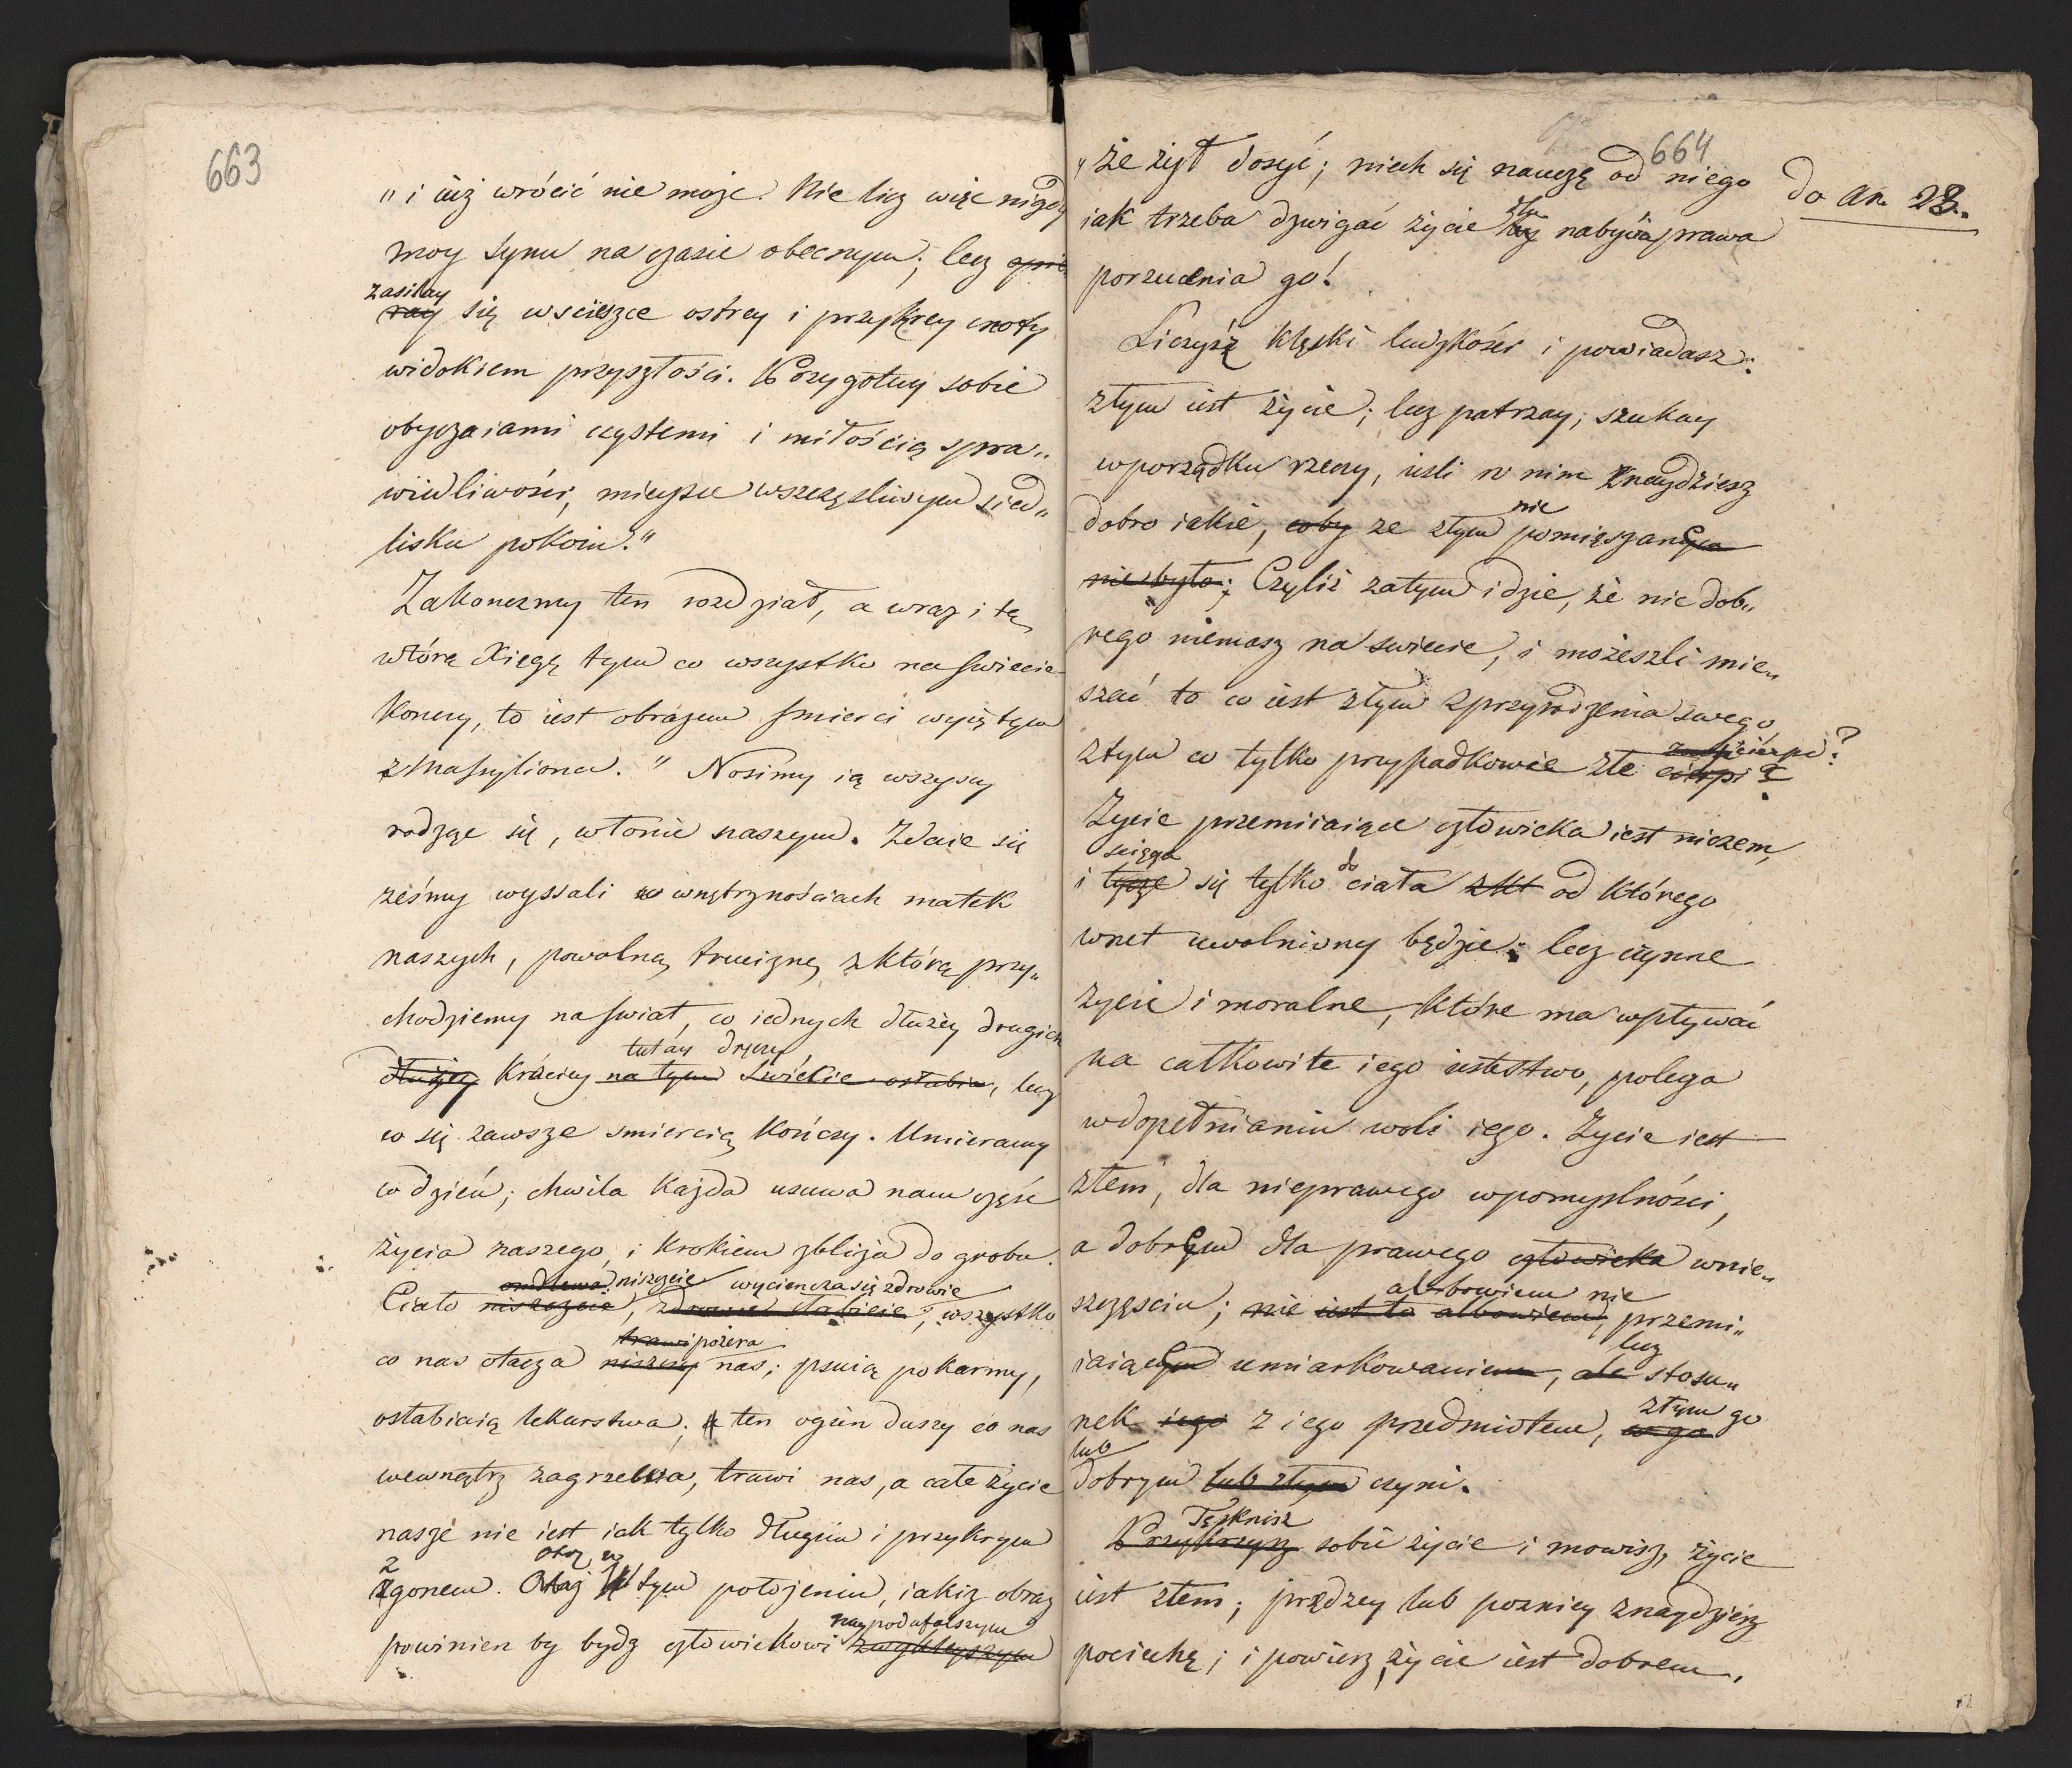 663
„ i iuż wrócić nie może. Nie licz więc nigdy
moy synu na czasie obecnym; lecz
zasilay
się w scieszce ostrey i przykrey cnoty
widokiem przyszłości. Przygotuy sobie
obyczaiami czystemi i miłością spra„
wiedliwości, mieysce w szczęsliwym sied„
lisku pokoiu."
Zakonczmy ten rozdział, a wraz i tę
wtórą Xięgę tym co wszystko na swiecie
konczy, to iest obrazem smierci wyiętym
z Massyliona. " Nosimy ią wszyscy
rodząc się, w łonie naszym. Zdaie się
żeśmy wyssali w wnętrznościach matek
naszych, powolną truciznę z którą przy„
chodziemy na swiat, co iednych dłużey drugich
tutay dręczy
dłużey króciey na tym swiecie osłabia, lecz
co się zawsze smiercią kończy. Umieramy
co dzień; chwila każda usuwa nam część
życia naszego, i krokiem zbliża do grobu.
niszczeie wycieńcza się zdrowie
Ciało niszczeie, zdrowie słabieie, wszystko
trawi pożera
co nas otacza niszczy nas; psuią pokarmy,
osłabiaią lekarstwa; ten ogień duszy co nas
wewnątrz zagrzewa, trawi nas, a całe życie
nasze nie iest iak tylko długim i przykrym
z
zgonem. Otóż w tym położeniu, iakiz obraz
naypodufalszym
powinien by bydz człowiekowi
664
„ że żył dosyć; niech się nauczą od niego do ar. 28.
iak trzeba dzwigać życie nabywa prawa
porzucenia go!
Liczysz klęski ludzkości i powiadasz:
złym iest życie; lecz patrzay; szukay
w porządku rzeczy, iesli w nim znaydziesz
nie
dobro iakie, coby ze złym pomięszanym
nie było; Czyliż zatym idzie, że nic dob„
rego niemasz na swiecie, i możeszli mie„
szać to co iest złym z przyrodzenia swego
z tym co tylko przypadkowie złe cierpi?
Zycie przemiiaiące człowieka iest niczem,
sciąga do
i tyczę się tylko ciała z kt od którego
wnet uwolniony będzie: lecz czynne
życie i moralne, które ma wpływać
na całkowite iego iestestwo, polega
w dopełnianiu woli iego. Zycie iest
złem, dla nieprawego w pomyslności,
a dobrym dla prawego człowieka w nie„
albowiem nie
szczęsciu; nie iest to albowiem, przemi„
lecz
iaiącym umiarkowaniem, ale stosu„
złym go
nek iego z iego przedmiotem, co go
lub
dobrym lub złym czyni.
Tęsknisz
Przykrzysz sobie życie i mowisz, życie
iest złem; prędzey lub pozniey znaydziesz
pociechę; i powiesz, życie iest dobrem.